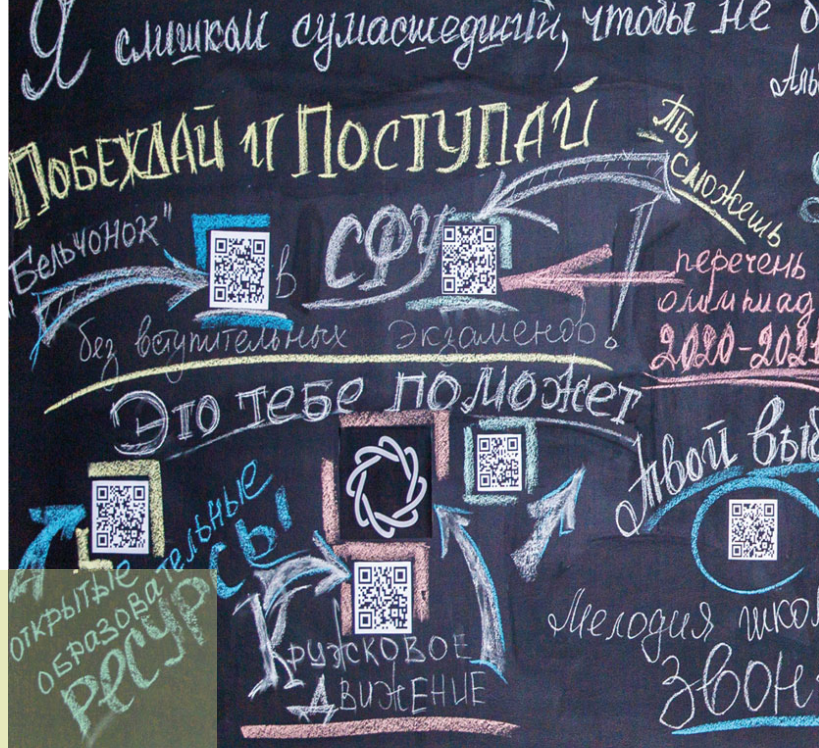 Я слишком сумасшедший, чтобы не
ПОБЕЖДАЙ И ПОСТУПАЙ
Ты
сможешь
"Бельчонок"
в СФУ
без вступительных экзаменов!
перечень
олимпиад
2020-2021
Это тебе поможет
твой выб
открытые
образовательные
РЕСУРСЫ
Кружковое
Движение
Мелодия шко
ЗВОН